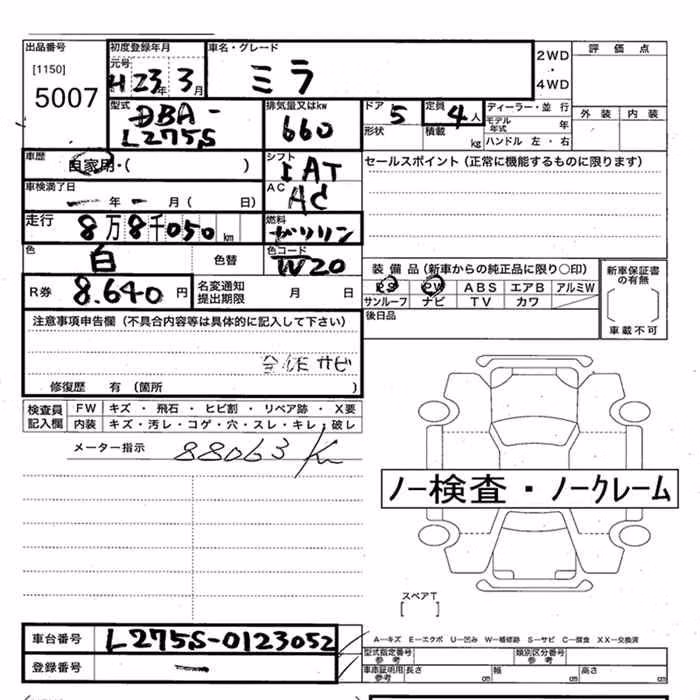 出品番号
[1150]
5007
初度登録年月
元号
H 23年 3月
車名・グレード
ミラ
2WD
・
4WD
評価点
外装 内装
型式
DBA-
L275S
排気量又はkw
660
ドア 5
形状
定員 4人
積載 kg
ディーラー・並 行
モデル年式 年
ハンドル 左・右
車歴
自家用・( )
シフト
IAT
セールスポイント(正常に機能するものに限ります)
車検満了日
ー年ー月( 日)
AC
AC
走行 8万8千050km
燃料
ガソリン
色 白 色替
色コード
W20
装備品(新車からの純正品に限り○印)
PS PW ABS エアB アルミW
サンルーフ ナビ TV カワ
新車保証書の有無
車載不可
R券 8.640円
名変通知
提出期限 月 日
後日品
注意事項申告欄(不具合内容等は具体的に記入して下さい)
サビ
修復歴 有(箇所 )
検査員
記入欄
FW キズ・飛石・ヒビ割・リペア跡・X要
内装 キズ・汚レ・コゲ・穴・スレ・キレ・破レ
メーター指示 88063 Km
ノー検査・ノークレーム
スペアT
[ ]
車台番号 L275S-0123052
登録番号 ー
A-キズ E-エクボ U-凹み W-補修跡 S-サビ C-腐食 XX-交換済
型式指定番号
参考
類別区分番号
参考
車庫証明用
参考
長さ cm 幅 cm 高さ cm